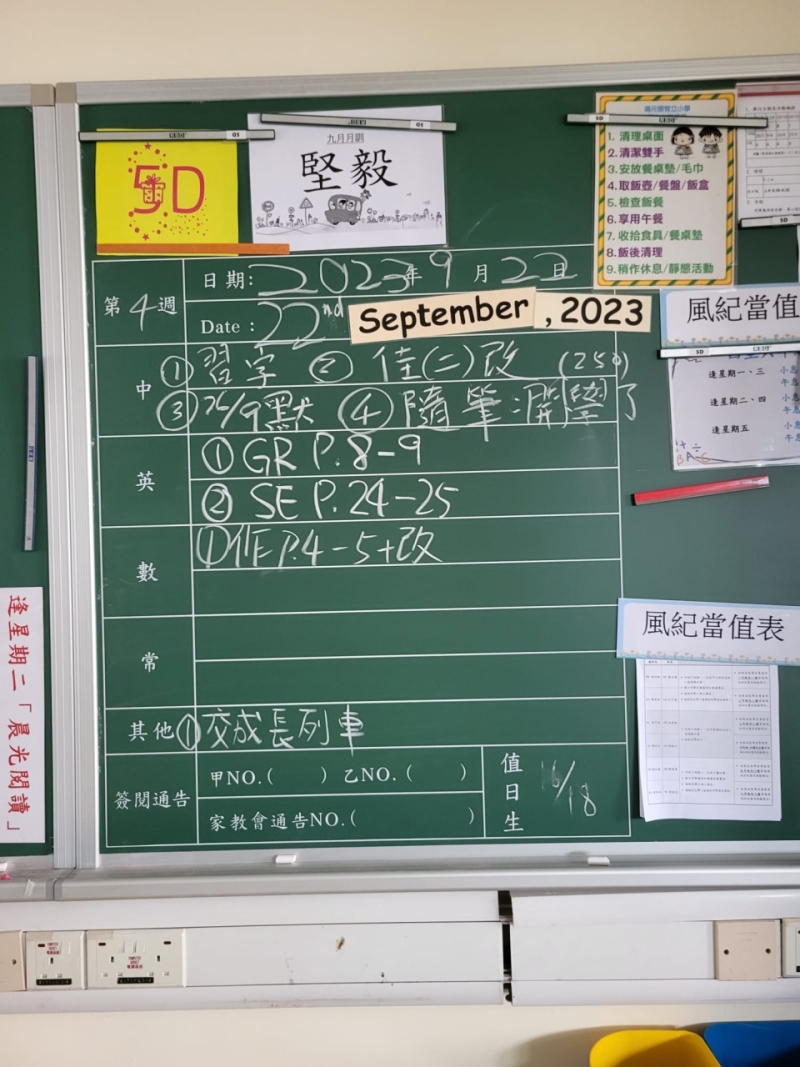 5D
九月月訓
堅毅
1. 清理桌面
2. 清潔雙手
3. 安放餐桌墊/毛巾
4. 取飯壺/餐盤/飯盒
5. 檢查飯餐
6. 享用午餐
7. 收拾食具/餐桌墊
8. 飯後清理
9. 稍作休息/靜態活動
第4週
日期: 2023年9月22日
Date : 22nd September , 2023
中
① 習字 ② 佳(二)改 (250)
③ 25/9默 ④ 隨筆:開學了
英
① GR P.8-9
② SE P.24-25
數
① 作P.4-5+改
常
其他
① 交成長列車
簽閱通告
甲NO.( ) 乙NO.( )
家教會通告NO.( )
值日生
16/18
風紀當值
逢星期一、三
逢星期二、四
逢星期五
風紀當值表
逢星期二「晨光閱讀」